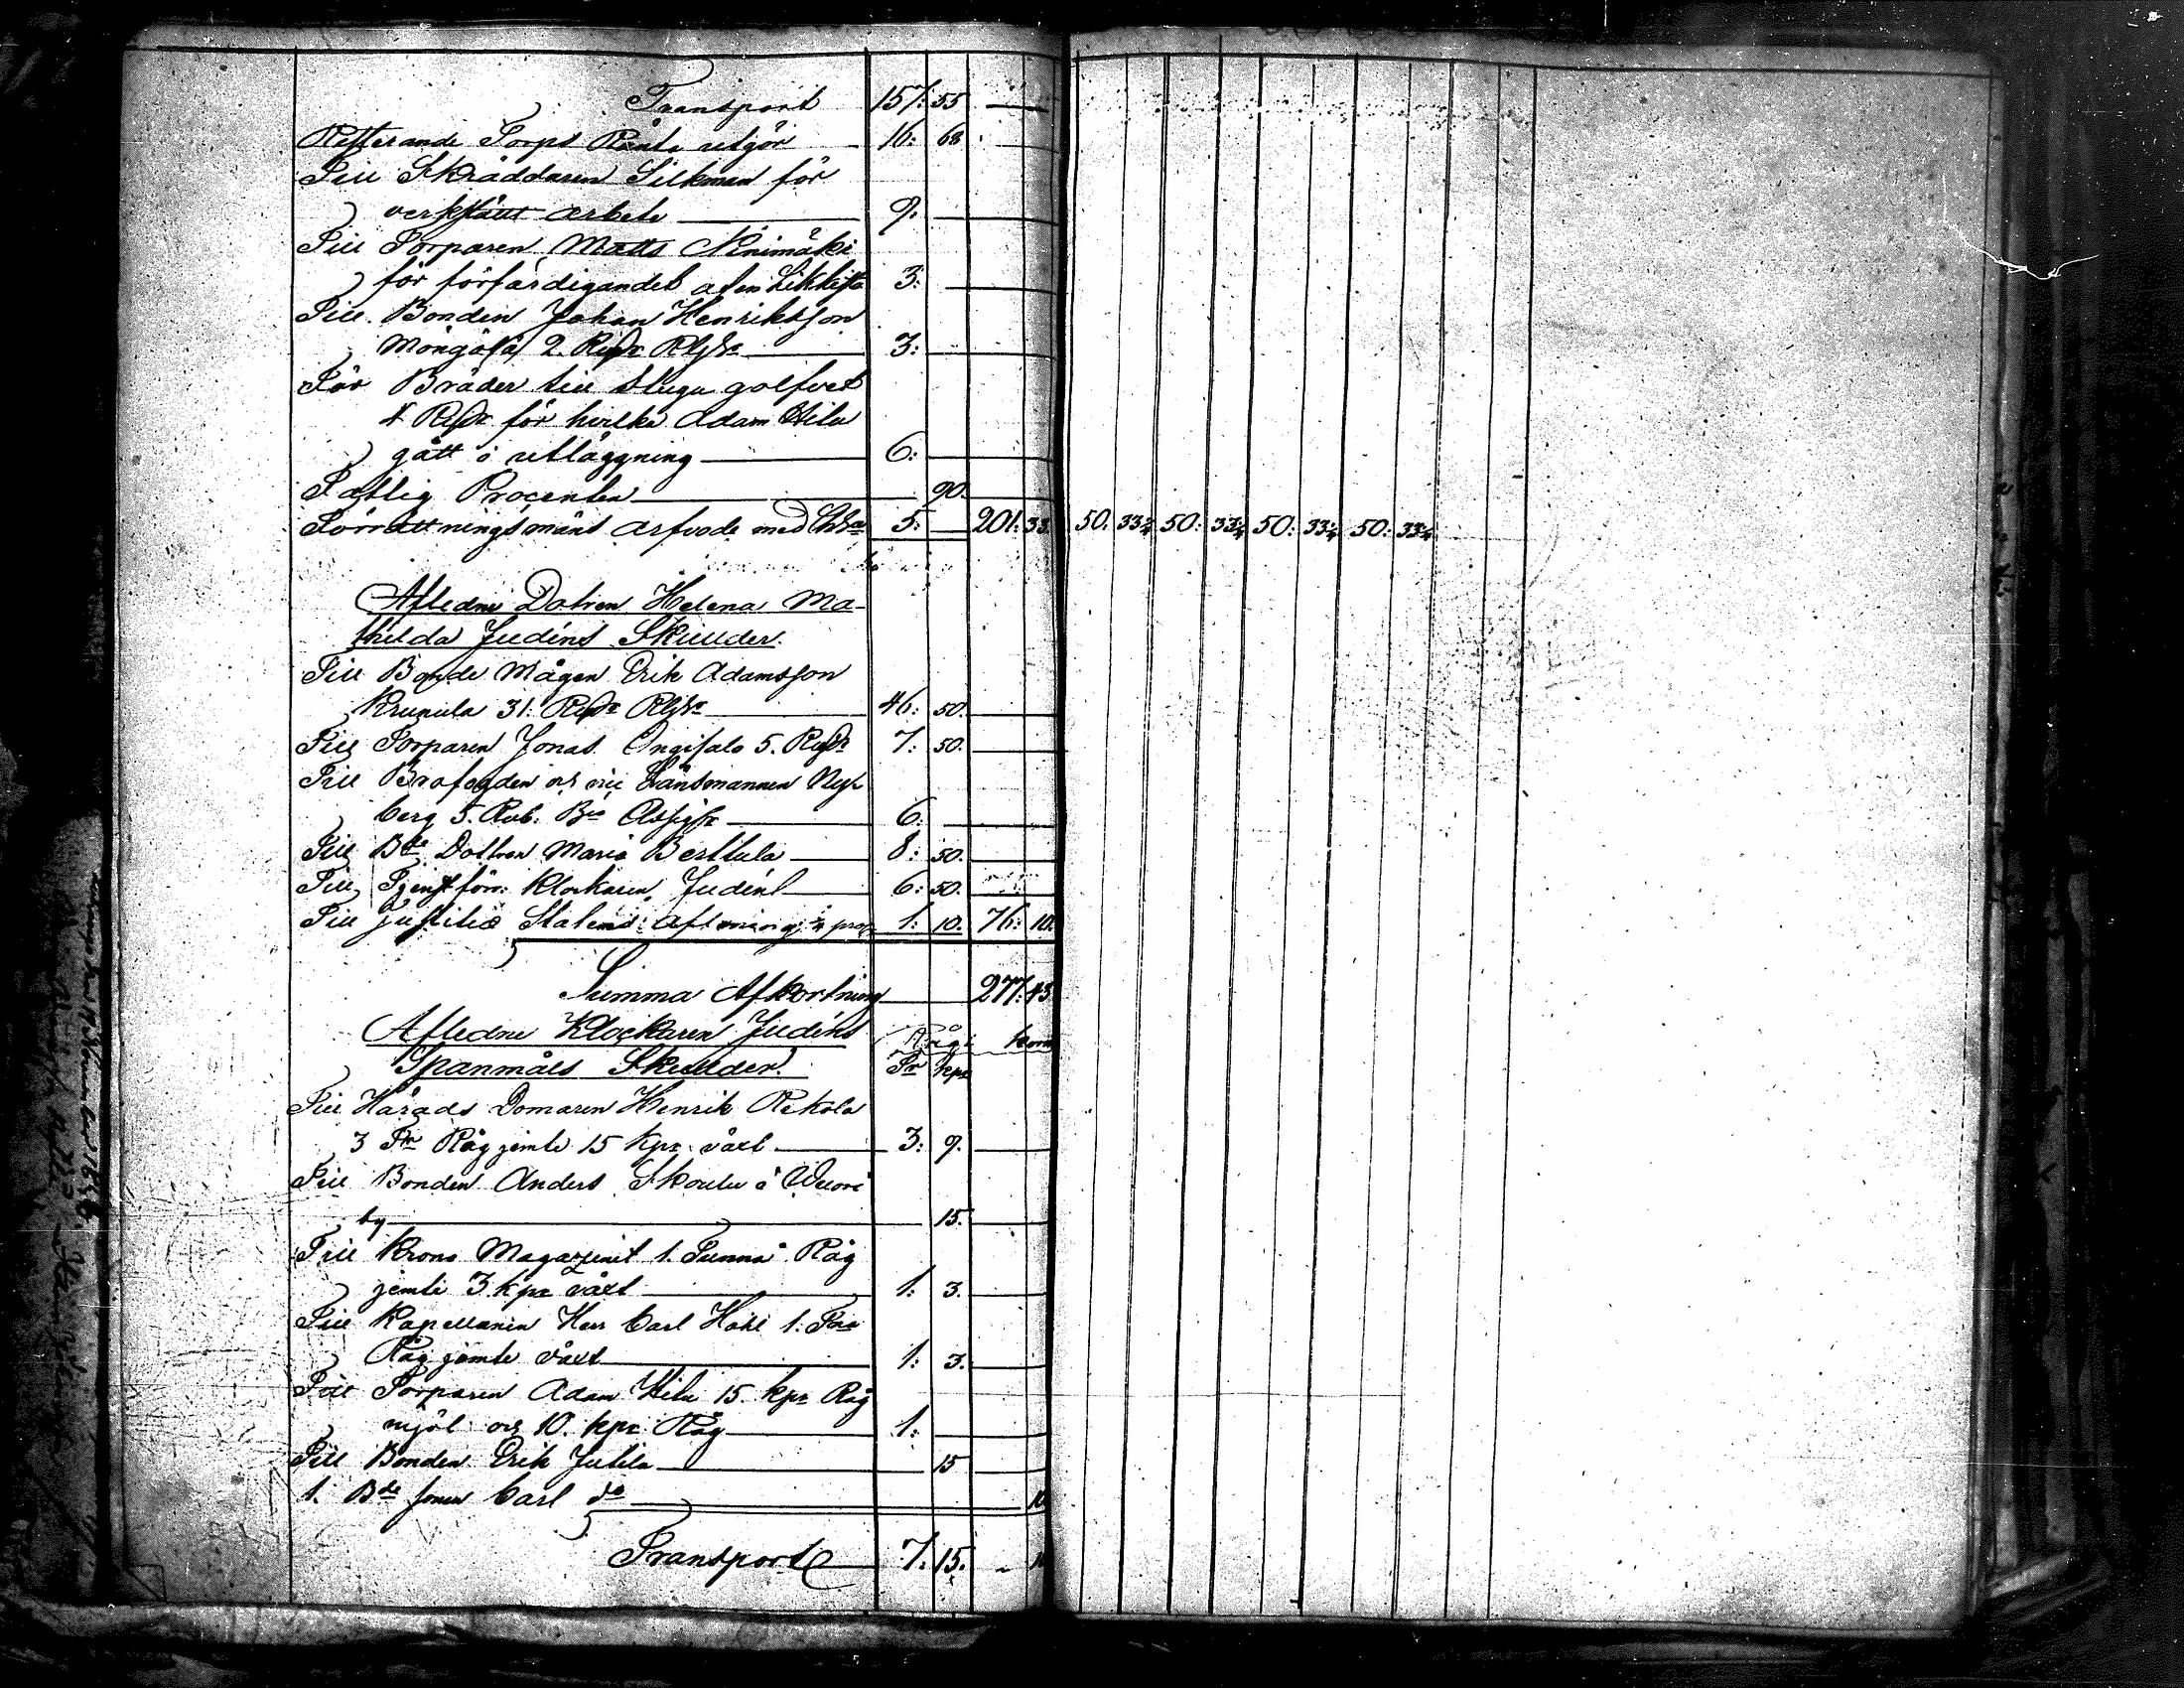 Transport 157: 55
Resterande Torps Ränta utgör 16: 68
Till Skräddaren Silkman för
verkstäldt arbete 9:
Till Torparen Matts Ninimäki
för förfärdigandet af en Likkista 3:
Till Bonden Johan Henriksson
Mångälä 2. Ri
För Bräder till stugu golfvet
4 för hvilka Adam Hilu
gått i utläggning 6:
Fattig Procenten 90.
Förrättningsmäns arfvode med 5: 201: 33. 50: 33¼ 50: 33¼ 50: 33¼ 50: 33¼
Afledne Dotren Helena Ma-
thilda Judéns Skulder.
Till Bonde Mågen Erik Adamsson
Krunula 31. 46: 50.
Till Torparen Jonas Ongisalo 5. 7: 50.
Till Brofogden och vice Länsmannen Ny-
berg 5. Rub. 6.
Till Bde Dottren Maria Berttula 8: 50.
Till Tjenstförr: Klockaren Judén 6: 50.
Till Justitiæ Statens 1: 10. 76: 10.
Summa Afkortning 277: 43
Afledne Klockaren Judéns Råg Korn
Spanmåls Skulder. Tr Kpr
Till Härads Domaren Henrik Rekola
3 Tnr Råg jemte 15 kpr växt 3: 9.
Till Bonden Anders Skoulu i
by 15.
Till Krono Magazinet 1. Tunna Råg
jemte 3 kpr växt 1: 3.
Till Kapellanen Herr Carl 1. Tna
Råg jemte växt 1: 3.
Till Torparen Adam Hilu 15. kpr Råg
mjöl och 10. kpr Råg 1:
Till Bonden Erik Jutila 15
1. Bde sonen Carl do 10
Transport 7: 15.